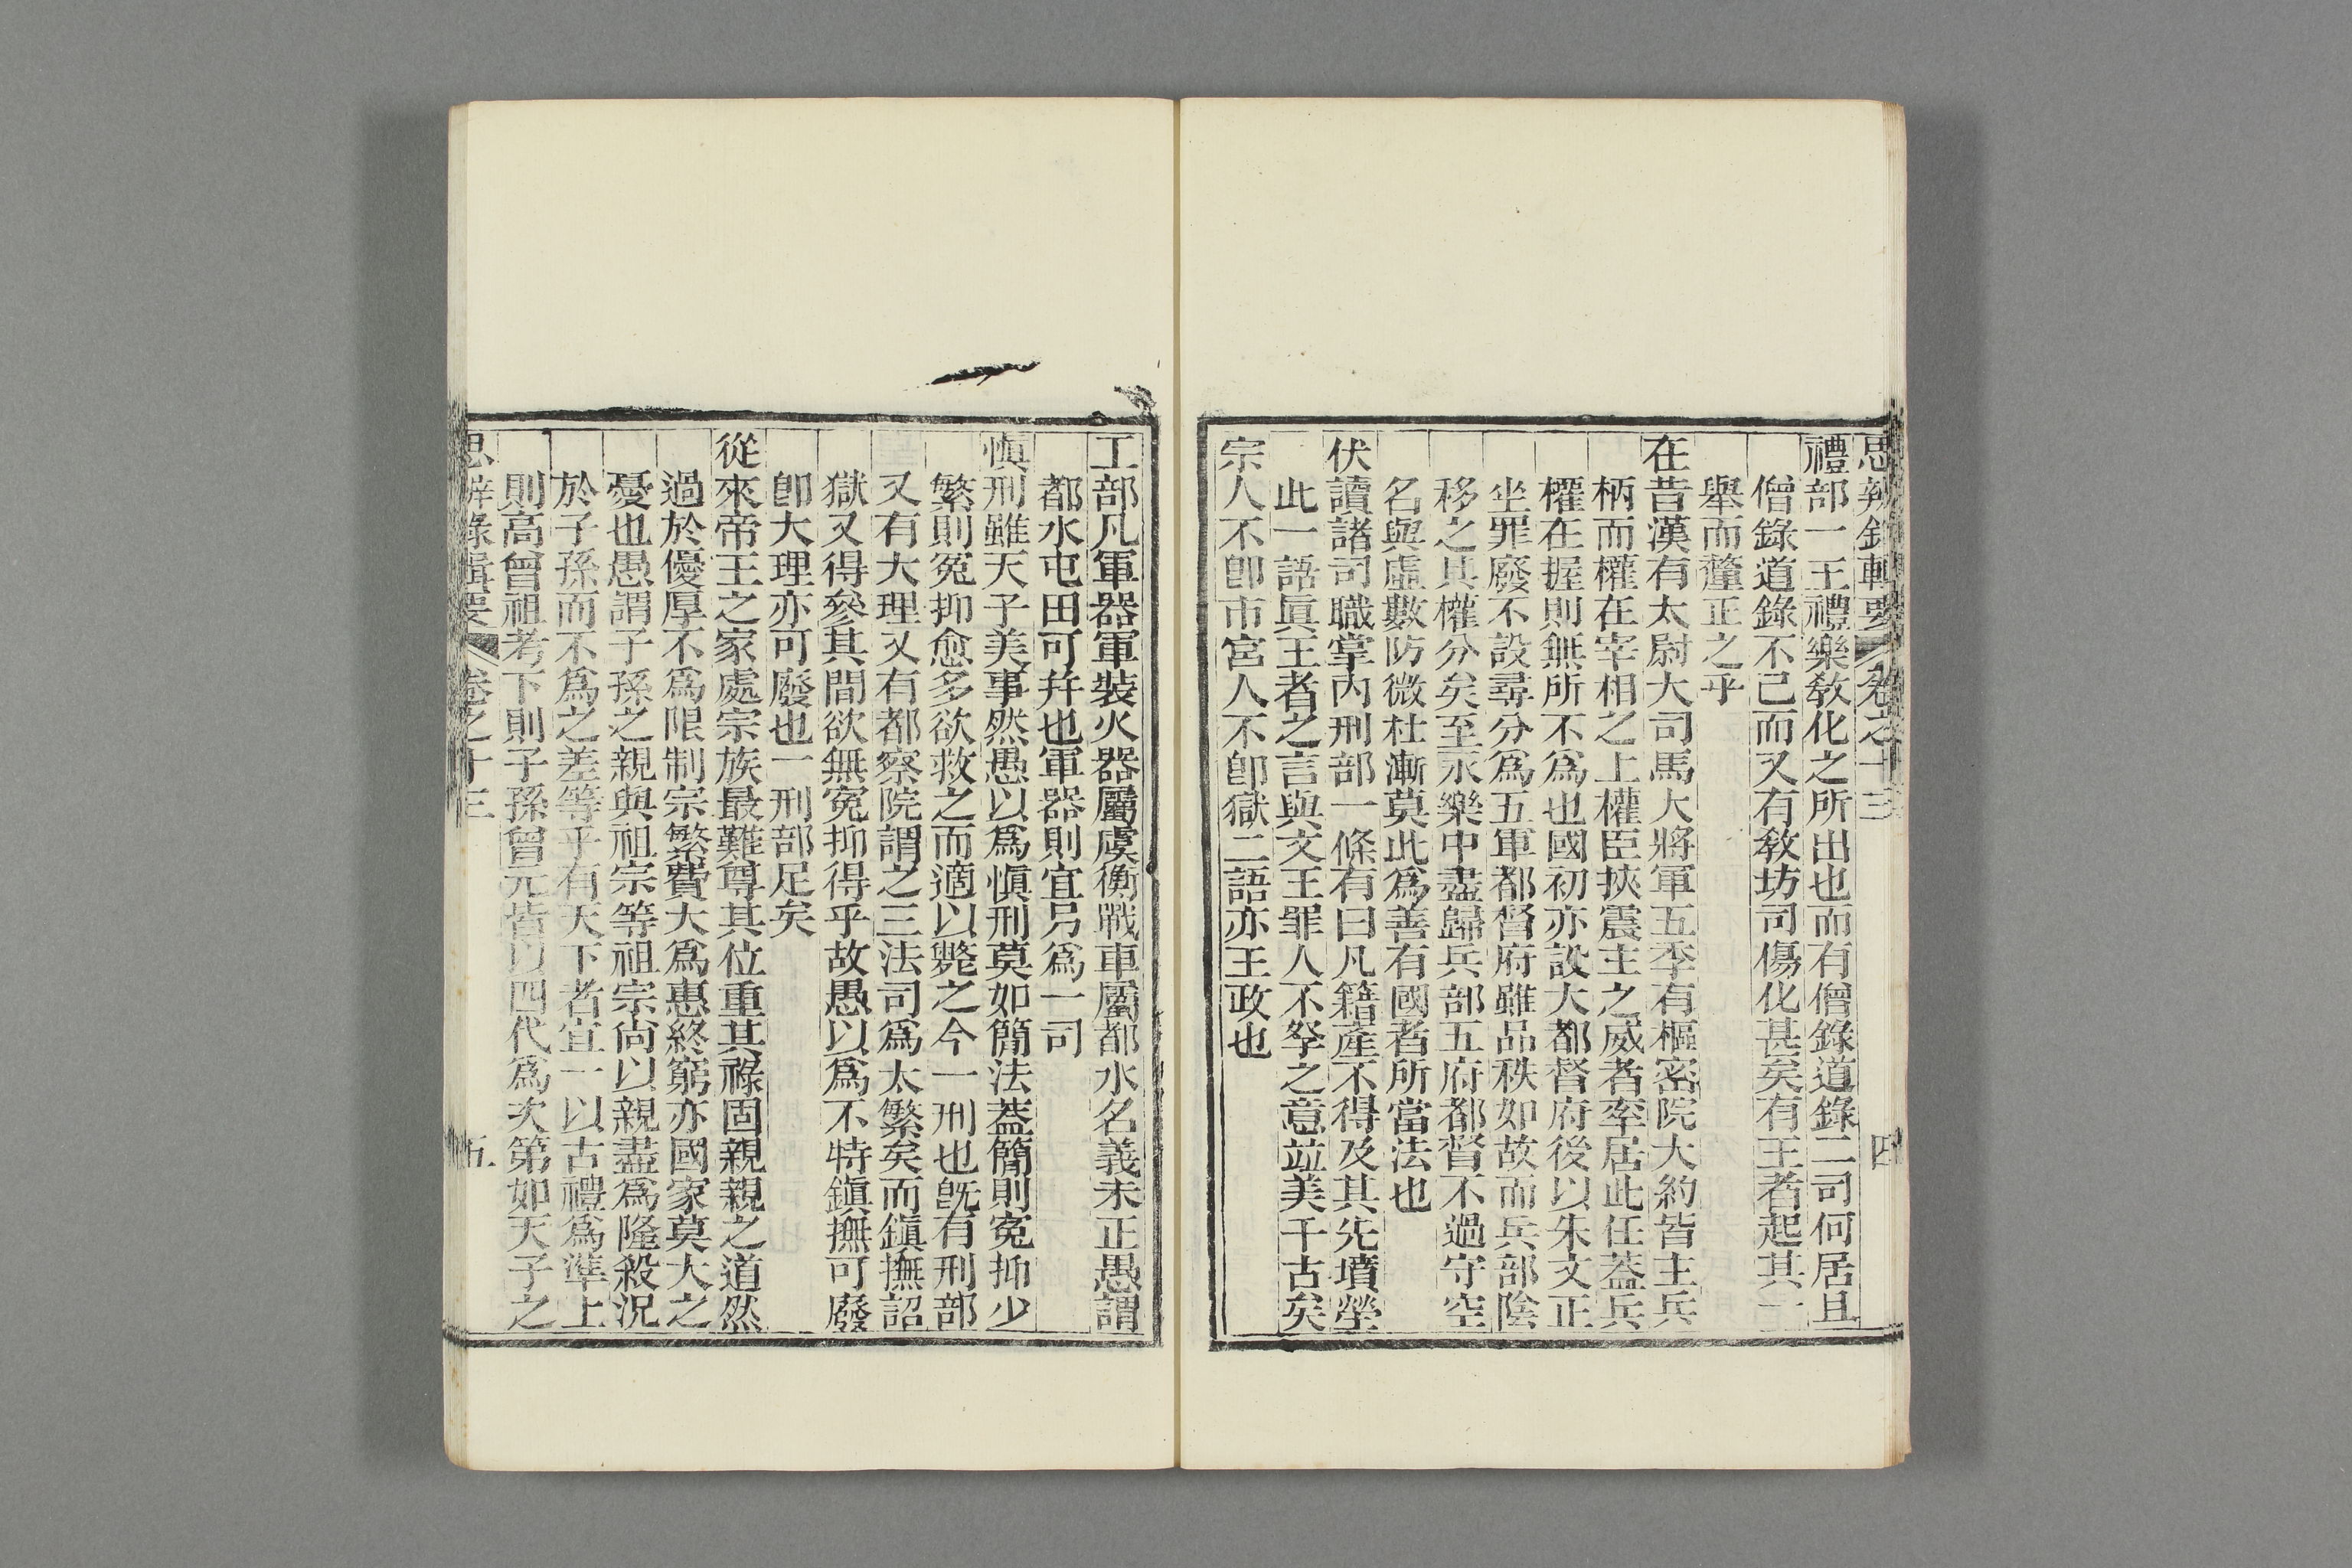 思辨錄輯要 卷之十三 四
禮部一王禮樂敎化之所出也而有僧錄道錄二司何居且
僧錄道錄不已而又有敎坊司傷化甚矣有王者起其一
舉而釐正之乎
在昔漢有太尉大司馬大將軍五季有樞密院大約皆主兵
柄而權在宰相之上權臣挾震主之威者率居此任葢兵
權在握則無所不爲也國初亦設大都督府後以朱文正
坐罪廢不設尋分爲五軍都督府雖品秩如故而兵部陰
移之其權分矣至永樂中盡歸兵部五府都督不過守空
名與虛數防微杜漸莫此爲善有國者所當法也
伏讀諸司職掌內刑部一條有曰凡籍產不得及其先墳塋
此一語眞王者之言與文王罪人不孥之意竝美千古矣
宗人不卽市宮人不卽獄二語亦王政也
工部凡軍器軍裝火器屬虞衡戰車屬都水名義未正愚謂
都水屯田可幷也軍器則宜另爲一司
愼刑雖天子美事然愚以爲愼刑莫如簡法葢簡則寃抑少
繁則寃抑愈多欲救之而適以斃之今一刑也旣有刑部
又有大理又有都察院謂之三法司爲太繁矣而鎭撫詔
獄又得參其間欲無寃抑得乎故愚以爲不特鎭撫可廢
卽大理亦可廢也一刑部足矣
從來帝王之家處宗族最難尊其位重其祿固親親之道然
過於優厚不爲限制宗繁費大爲惠終窮亦國家莫大之
憂也愚謂子孫之親與祖宗等祖宗尙以親盡爲隆殺況
於子孫而不爲之差等乎有天下者宜一以古禮爲準上
則高曾祖考下則子孫曾元皆以四代爲次第如天子之
思辨錄輯要 卷之十三 五